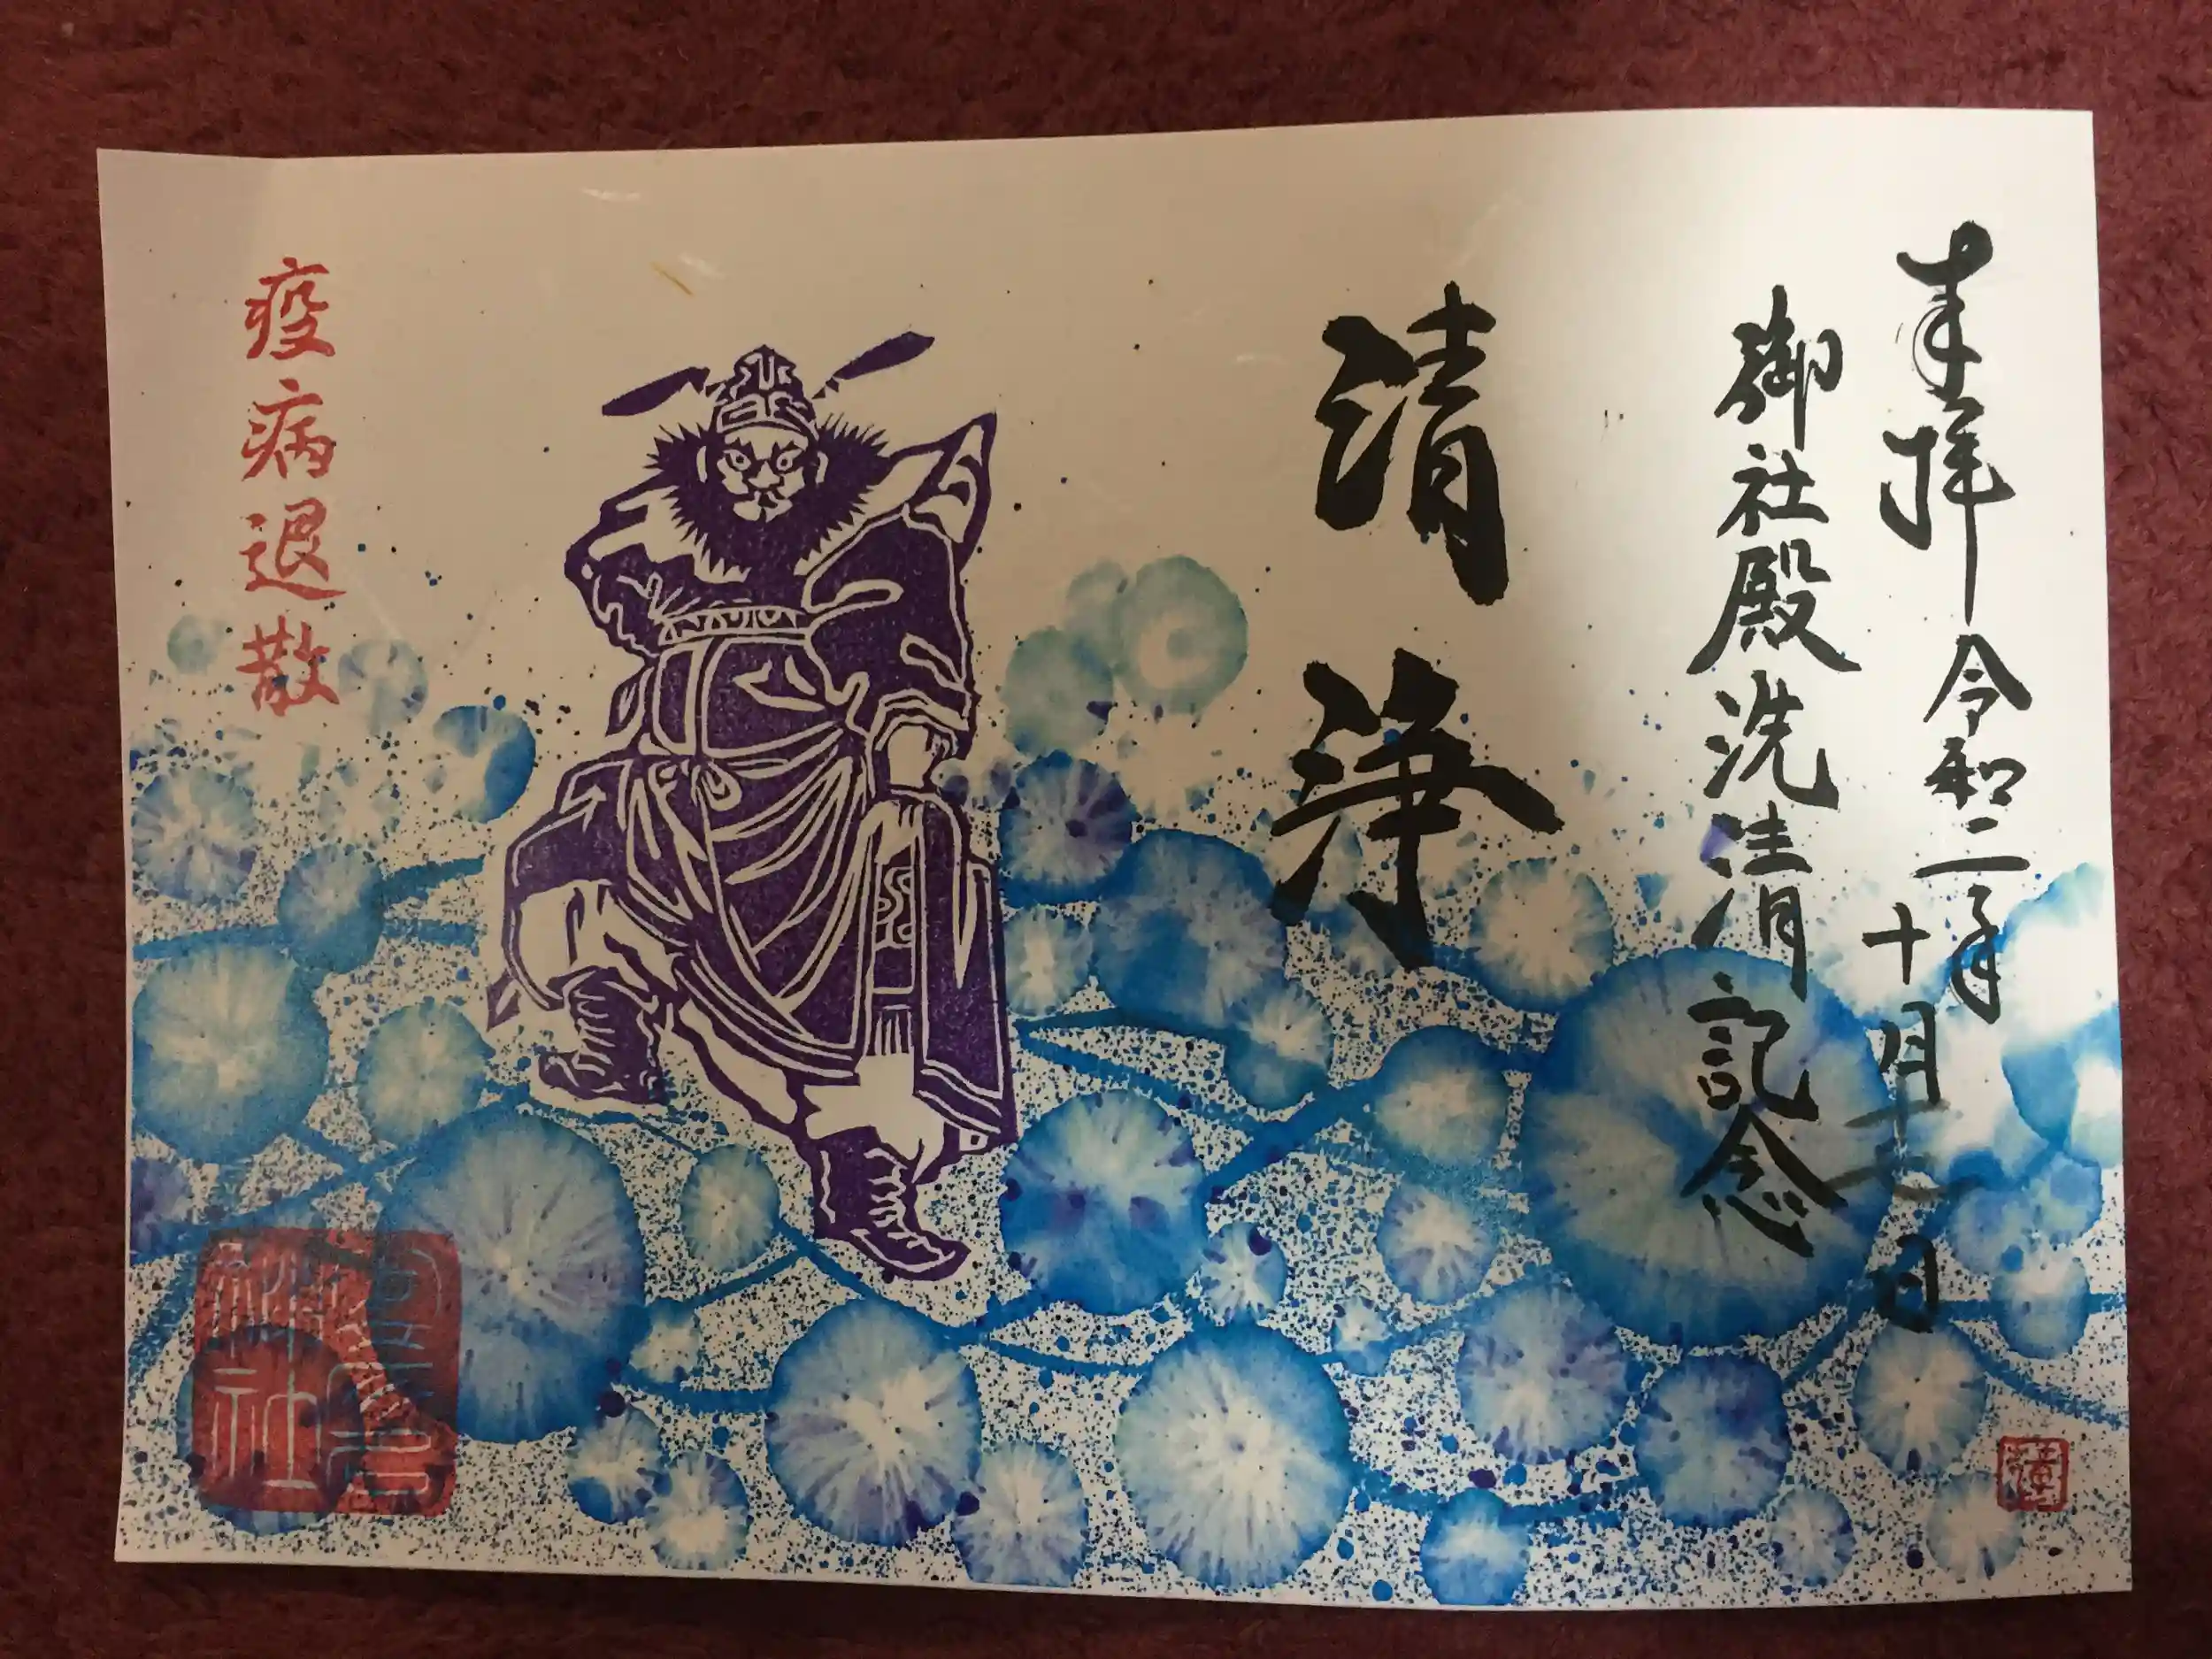 奉拝 令和二年
十月十七日
御社殿洗清記念
清浄
疫病退散
神社